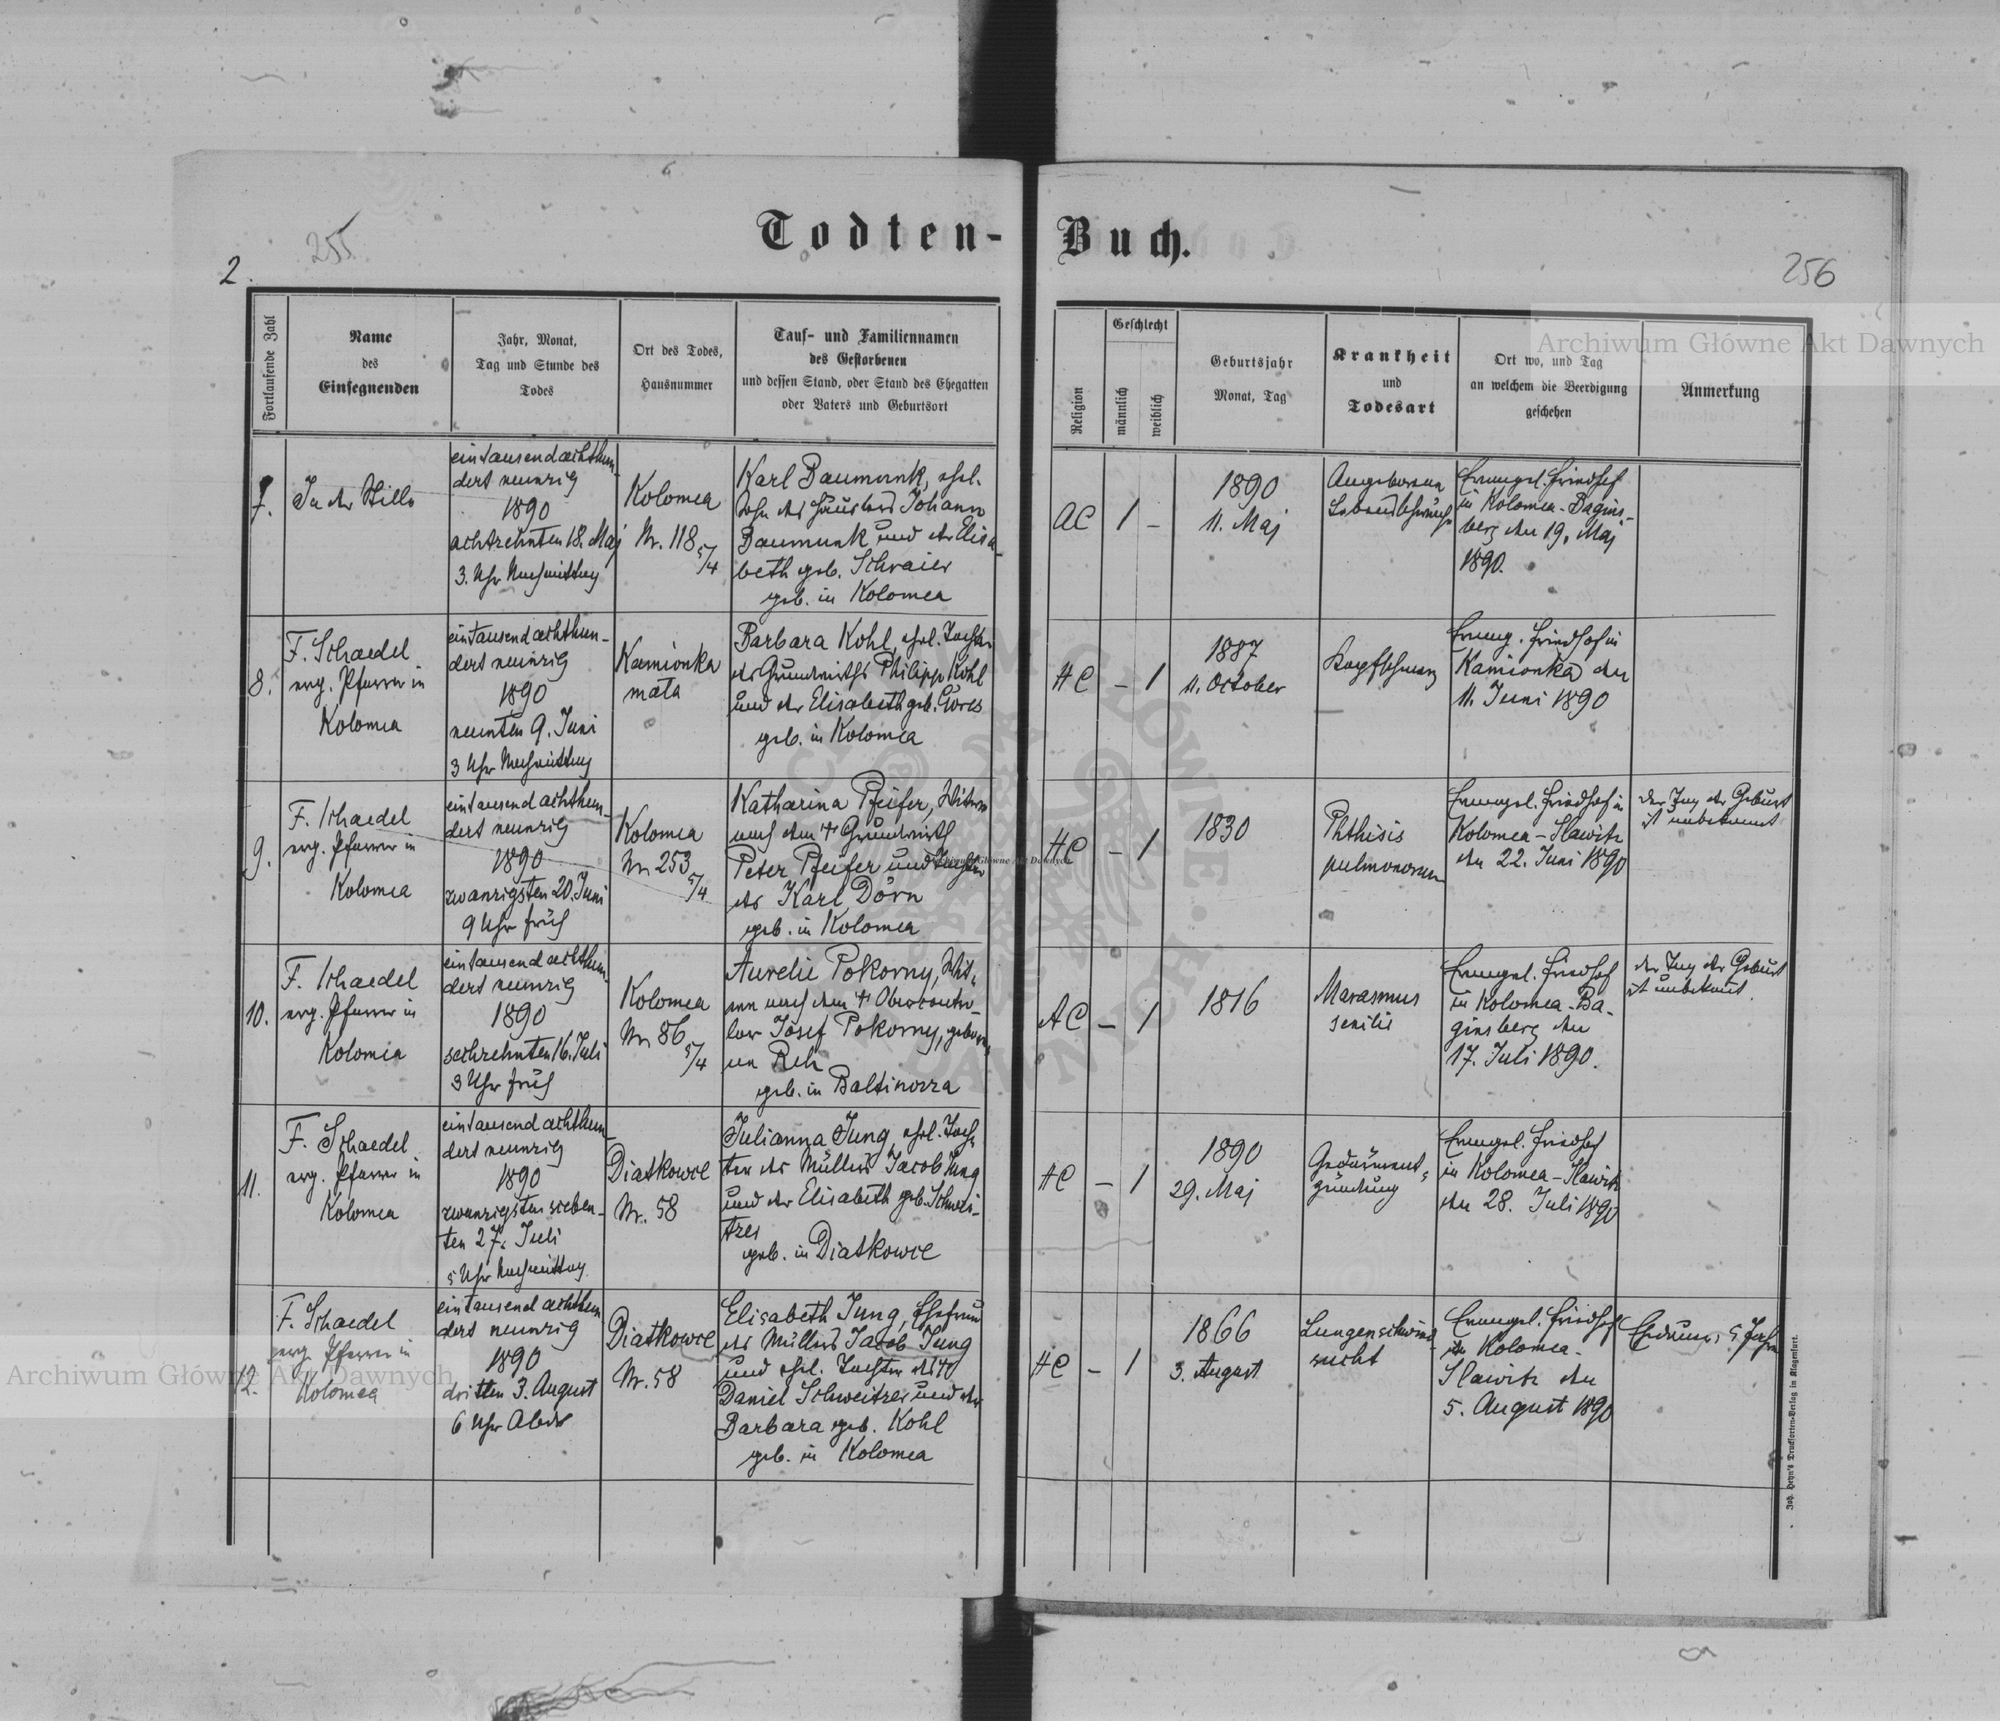 Todten-Buch.
255
2.
256
Archiwum Główne Akt Dawnych
Fortlaufende Zahl
Name
des
Einsegnenden
Jahr, Monat,
Tag und Stunde des
Todes
Ort des Todes,
Hausnummer
Tauf- und Familiennamen
des Gestorbenen
und dessen Stand, oder Stand des Ehegatten
oder Vaters und Geburtsort
Religion
Geschlecht
männlich
weiblich
Geburtsjahr
Monat, Tag
Krankheit
und
Todesart
Ort wo, und Tag
an welchem die Beerdigung
geschehen
Anmerkung
7.
In der Stille
eintausendachthun-
dert neunzig
1890
achtzehnten 18. Maj
3. Uhr Nachmittag
Kolomea
Nr. 118
5/4
Karl Baumunk, ehel.
Sohn des Häuslers Johann
Baumunk und der Elisa-
beth geb. Schraier
geb. in Kolomea
AC
1
-
1890
11. Maj
Angeborene
Lebensschwäche
Evangel. Friedhof
in Kolomea-Bagins-
berg den 19. Maj
1890.
8.
F. Schaedel
evg. Pfarrer in
Kolomea
eintausendachthun-
dert neunzig
1890
neunten 9. Juni
3 Uhr Nachmittag
Kamionka
mała
Barbara Kohl, ehel. Tochter
des Grundwirths Philipp Kohl
und der Elisabeth geb. Göres
geb. in Kolomea
HC
-
1
1887
11. October
Evang. Friedhof in
Kamionka den
11. Juni 1890
9.
F. Schaedel
evg. Pfarrer in
Kolomea
eintausend achthun-
dert neunzig
1890
zwanzigsten 20. Juni
9 Uhr früh
Kolomea
Nr. 253
5/4
Katharina Pfeifer, Witwe
nach dem + Grundwirth
Peter Pfeifer und Tochter
des Karl Dörn
geb. in Kolomea
HC
-
1
1830
Phthisis
pulmonorum
Evangel. Friedhof in
Kolomea-Slawitz
den 22. Juni 1890
Der Tag der Geburt
ist unbekannt
10.
F. Schaedel
evg. Pfarrer in
Kolomea
eintausend achthun-
dert neunzig
1890
sechzehnten 16. Juli
3 Uhr früh
Kolomea
Nr. 86
5/4
Aurelie Pokorny, Wit-
we nach dem + Obercontro-
lor Josef Pokorny, gebore-
ne Reh
geb. in Baltinorra
AC
-
1
1816
Marasmus
senilis
Evangel. Friedhof
in Kolomea-Ba-
ginsberg den
17. Juli 1890.
der Tag der Geburt
ist unbekannt.
11.
F. Schaedel
evg. Pfarrer in
Kolomea
eintausend achthun-
dert neunzig
1890
zwanzigsten sieben-
ten 27. Juli
5 Uhr Nachmittag.
Diatkowce
Nr. 58
Julianna Jung, ehel. Toch-
ter des Müllers Jacob Jung
und der Elisabeth geb. Schwei-
tzer
geb. in Diatkowce
HC
-
1
1890
29. Maj
Gedärment-
zündung
Evangel. Friedhof
in Kolomea-Slawitz
den 28. Juli 1890
12.
F. Schaedel
evg. Pfarrer in
Kolomea
eintausend achthun
dert neunzig
1890
dritten 3. August
6 Uhr Abds
Diatkowce
Nr. 58
Elisabeth Jung, Ehefrau
des Müllers Jacob Jung
und ehel. Tochter des +
Daniel Schweitzer und der
Barbara geb. Kohl
geb. in Kolomea
HC
-
1
1866
3. August
Lungenschwind-
sucht
Evangel. Friedhof
in Kolomea-
Slawitz den
5. August 1890
Joh. Heyn's Drucksorten-Verlag in Klagenfurt.
Archiwum Główne Akt Dawnych